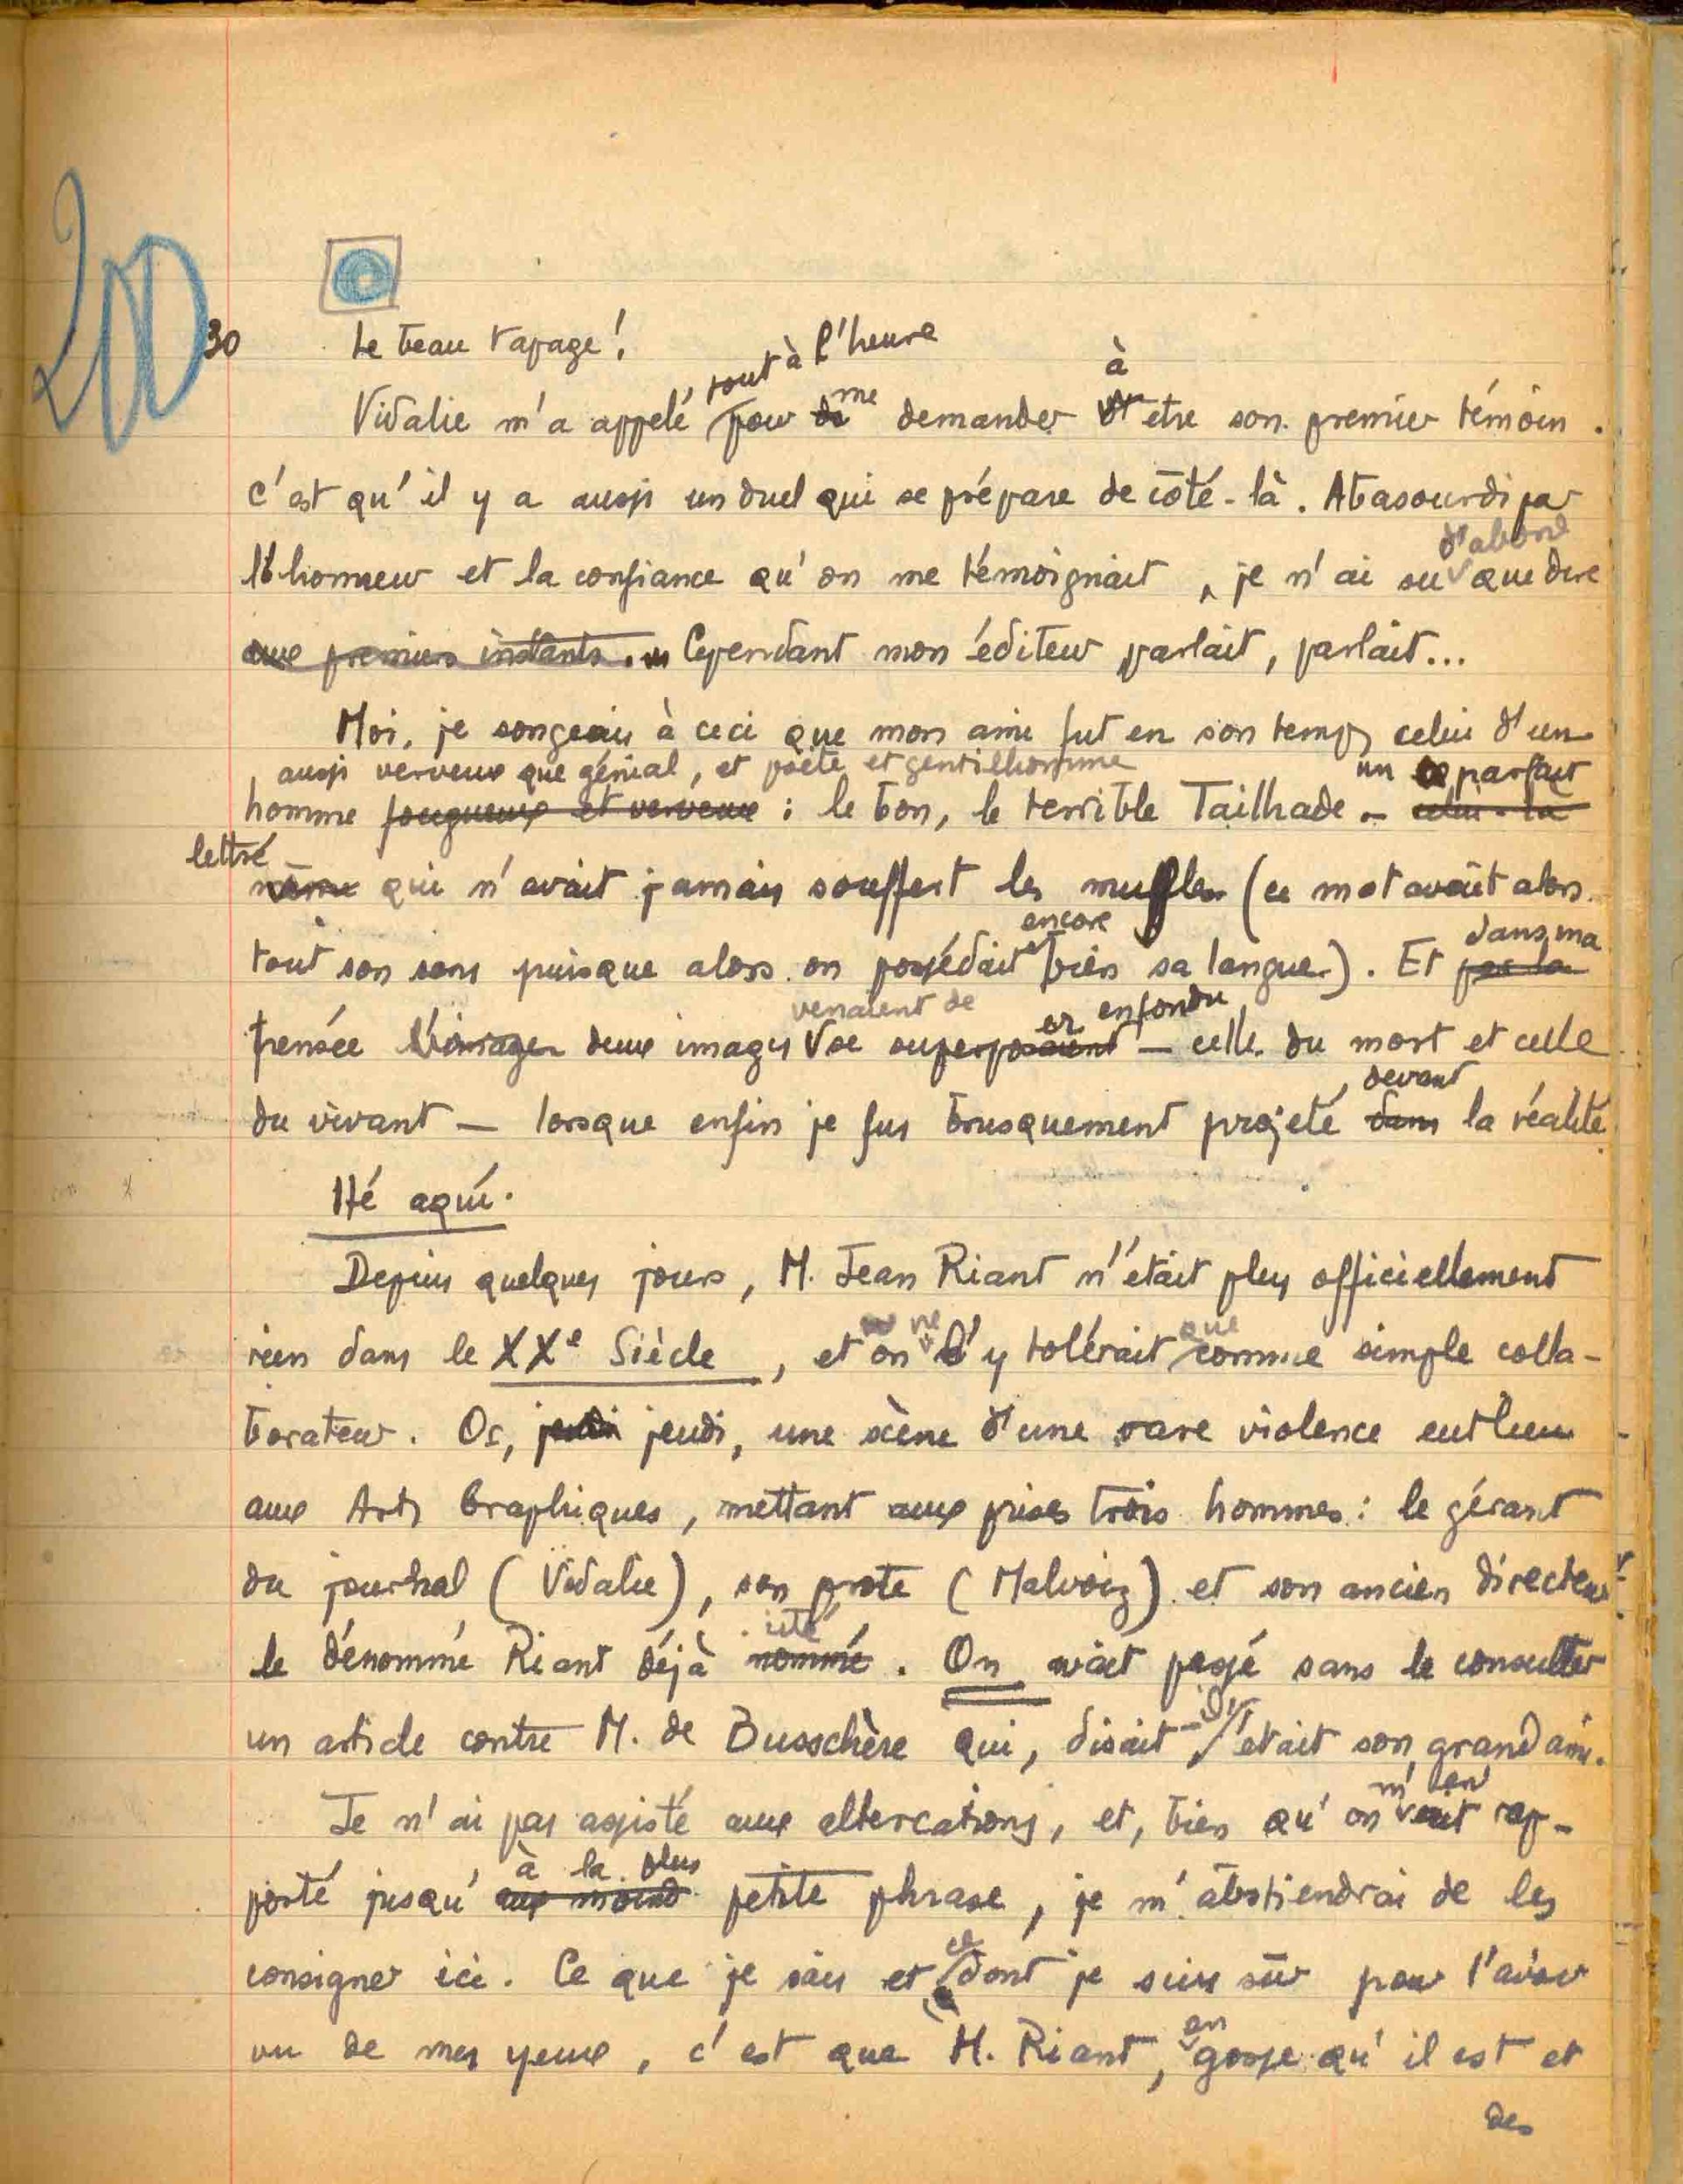 200
30 Le beau tapage !
tout à l'heure
Vidalie m'a appelé pour de me demander à d'être son premier témoin .
c'est qu'il y a aussi un duel qui se prépare de côté-là . Abasourdi par
d'abord
l'honneur et la confiance qu'on me témoignait , je n'ai su que dire
aux premiers instants . Cependant mon éditeur parlait, parlait...
Moi, je songeais à ceci que mon ami fut en son temps celui d'un
aussi verveux que génial, et poète et gentilhomme un parfait
homme fougueux et verveux : le bon, le terrible Tailhade - celui-là
lettré
même qui n'avait jamais souffert les mufles (ce mot avait alors
encore dans ma
tout son sens puisque alors on possédait bien sa langue.) . Et par la
venaient de er en fondu
pensée l'image deux images se superposaient — celle du mort et celle
devant
du vivant — lorsque enfin je fus brusquement projeté dans la réalité.
Hé aqui.
Depuis quelques jours, M. Jean Riant n'était plus officiellement
ne que
rien dans le XXe Siècle , et on l'y tolérait comme simple colla-
borateur . Or, jeudi jeudi, une scène d'une rare violence eut lieu
aux Arts Graphiques , mettant aux prises trois hommes : le gérant
du journal ( Vidalie ), son prote ( Malvoiz ) et son ancien directeur
cité
le dénommé Riant déjà nommé . On avait passé sans le consulter
un article contre M. de Busschère qui, disait-il, était son grand ami.
m'en
Je n'ai pas assisté aux altercations, et, bien qu'on eût rap-
à la plus
porté jusqu'aux moind petite phrase , je m'abstiendrai de les
ce
consigner ici . Ce que je sais et dont je suis sûr pour l'avoir
en
vu de mes yeux , c'est que M. Riant, gosse qu'il est et
des